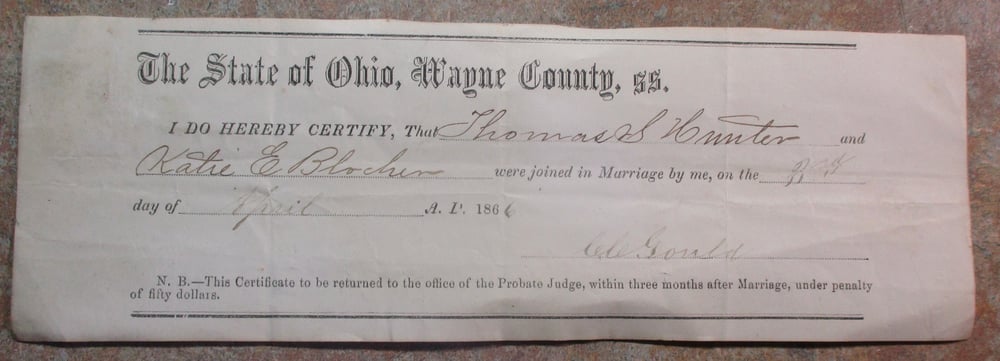 The State of Ohio, Wayne County, ss.
I DO HEREBY CERTIFY, That Thomas S Hunter and
Katie E Blocher were joined in Marriage by me, on the
day of April A. D. 1866
Gould
N. B.—This Certificate to be returned to the office of the Probate Judge, within three months after Marriage, under penalty
of fifty dollars.